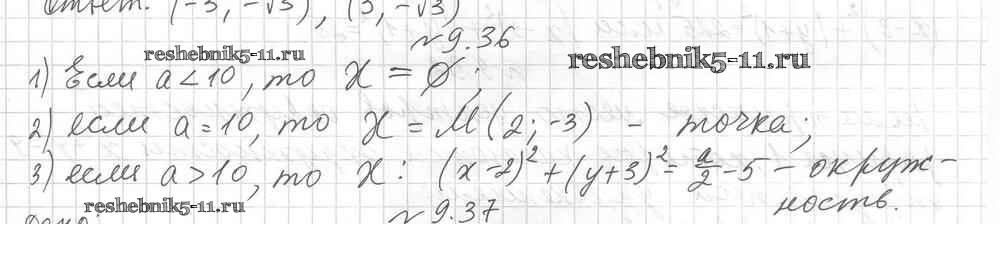 Ответ: (-3, -√3), (3, -√3)
№ 9.36
reshebnik5-11.ru
reshebnik5-11.ru
1) Если a < 10, то X = Ø;
2) если a = 10, то X = M(2; -3) - точка;
3) если a > 10, то X: (x-2)² + (y+3)² = a/2 - 5 - окруж-
ность.
reshebnik5-11.ru
№ 9.37